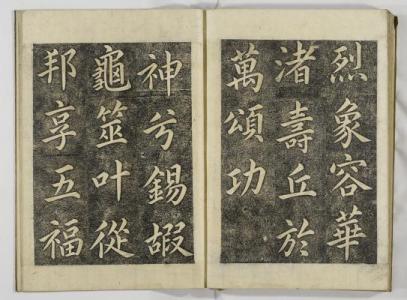 烈象容華
渚壽丘於
萬頌功
神兮錫嘏
龜筮叶從
邦享五福